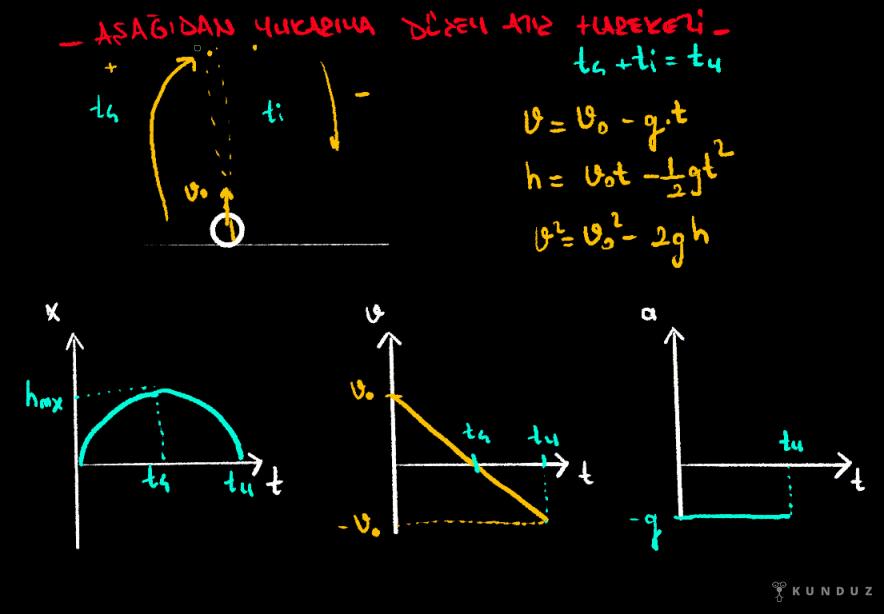 - AŞAĞIDAN YUKARIYA DÜŞEY ATIŞ HAREKETİ -
tç + ti = tu
+
tç
ti
-
v₀
v = v₀ - g.t
h = v₀t - 1/2 gt²
v² = v₀² - 2gh
x
hmx
tç
tu
t
v
v₀
tç
tu
t
-v₀
a
tu
t
-g
KUNDUZ